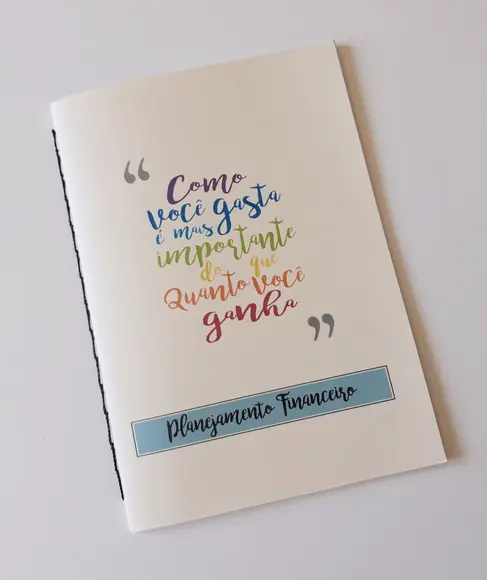 “
Como
você gasta
é mais
importante
do que
Quanto você
ganha
”
Planejamento Financeiro